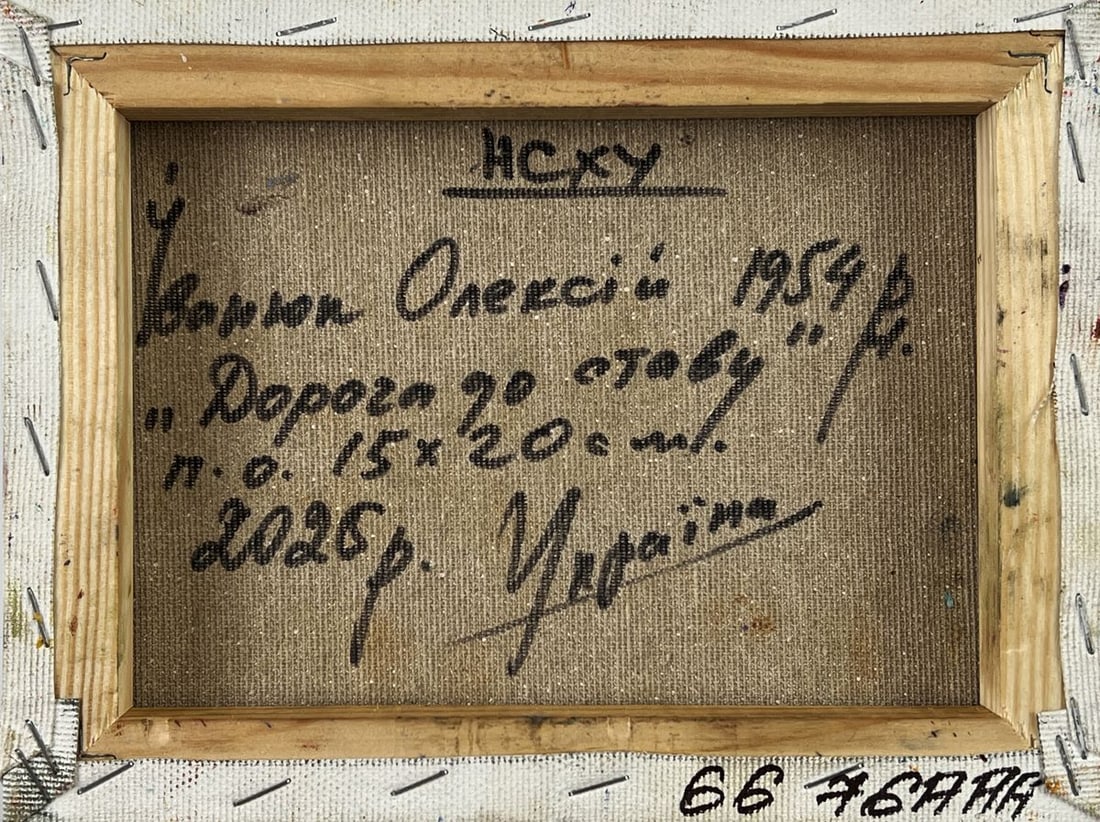 НСХУ
Іванюк Олексій 1954 р.н.
"Дорога до ставу"
п.о. 15х20 см.
2026р. Україна
66 76ААА